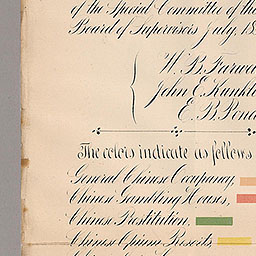 of the Special Committee of the
Board of Supervisors July, 18
W. B. Farwe
John E. Kunkl
E. B. Pond
The colors indicate as follows
General Chinese Occupancy,
Chinese Gambling Houses,
Chinese Prostitution,
Chinese Opium Resorts